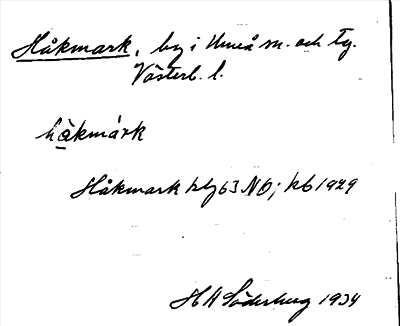 Håkmark, by i Umeå sn. och tg.
Västerb. l.
hàkmárk
Håkmark kbl 63 NO; kb 1929
H H Söderberg 1934